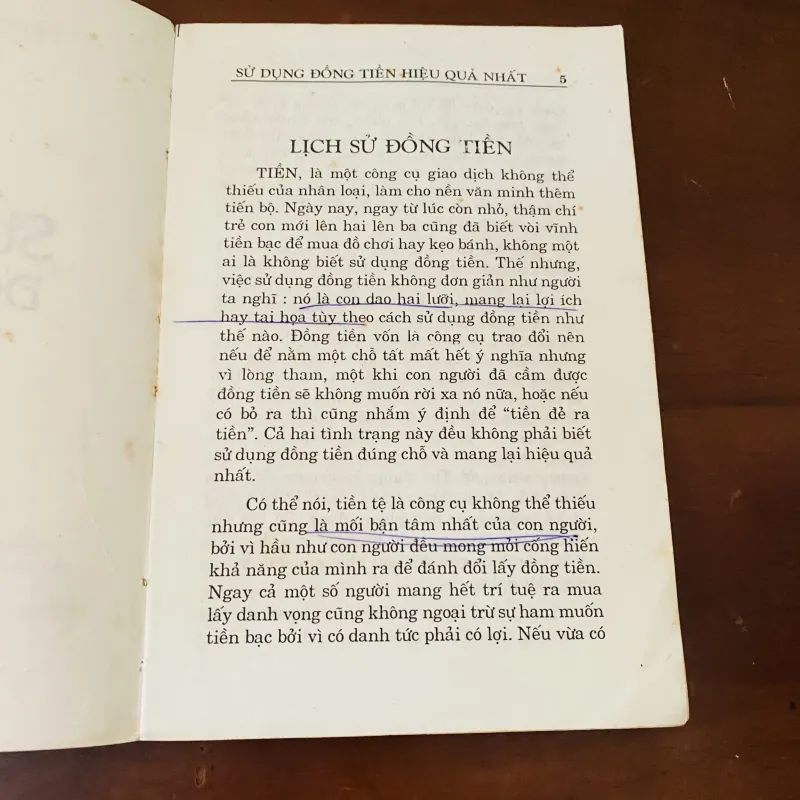 SỬ DỤNG ĐỒNG TIỀN HIỆU QUẢ NHẤT 5
LỊCH SỬ ĐỒNG TIỀN
TIỀN, là một công cụ giao dịch không thể
thiếu của nhân loại, làm cho nền văn minh thêm
tiến bộ. Ngày nay, ngay từ lúc còn nhỏ, thậm chí
trẻ con mới lên hai lên ba cũng đã biết vòi vĩnh
tiền bạc để mua đồ chơi hay kẹo bánh, không một
ai là không biết sử dụng đồng tiền. Thế nhưng,
việc sử dụng đồng tiền không đơn giản như người
ta nghĩ : nó là con dao hai lưỡi, mang lại lợi ích
hay tai họa tùy theo cách sử dụng đồng tiền như
thế nào. Đồng tiền vốn là công cụ trao đổi nên
nếu để nằm một chỗ tất mất hết ý nghĩa nhưng
vì lòng tham, một khi con người đã cầm được
đồng tiền sẽ không muốn rời xa nó nữa, hoặc nếu
có bỏ ra thì cũng nhắm ý định để “tiền đẻ ra
tiền”. Cả hai tình trạng này đều không phải biết
sử dụng đồng tiền đúng chỗ và mang lại hiệu quả
nhất.
Có thể nói, tiền tệ là công cụ không thể thiếu
nhưng cũng là mối bận tâm nhất của con người,
bởi vì hầu như con người đều mong mỏi cống hiến
khả năng của mình ra để đánh đổi lấy đồng tiền.
Ngay cả một số người mang hết trí tuệ ra mua
lấy danh vọng cũng không ngoại trừ sự ham muốn
tiền bạc bởi vì có danh tức phải có lợi. Nếu vừa có